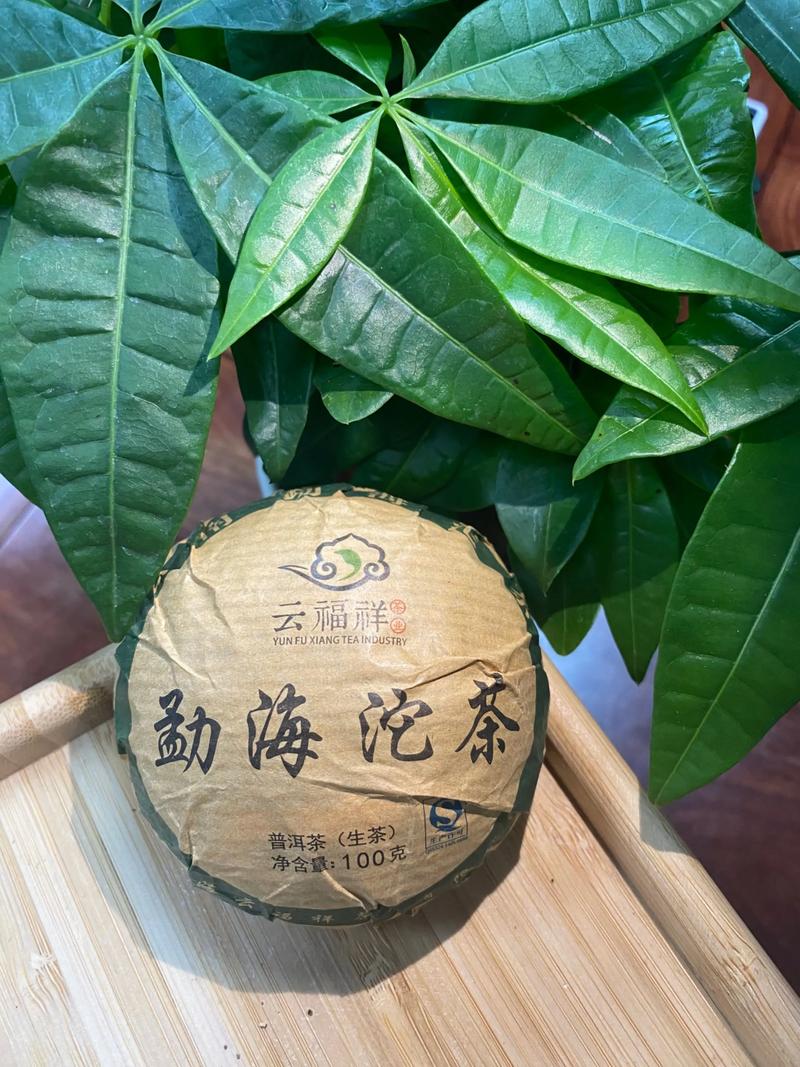 云福祥茶业
YUN FU XIANG TEA INDUSTRY
勐海沱茶
普洱茶（生茶）
净含量:100克
生产许可